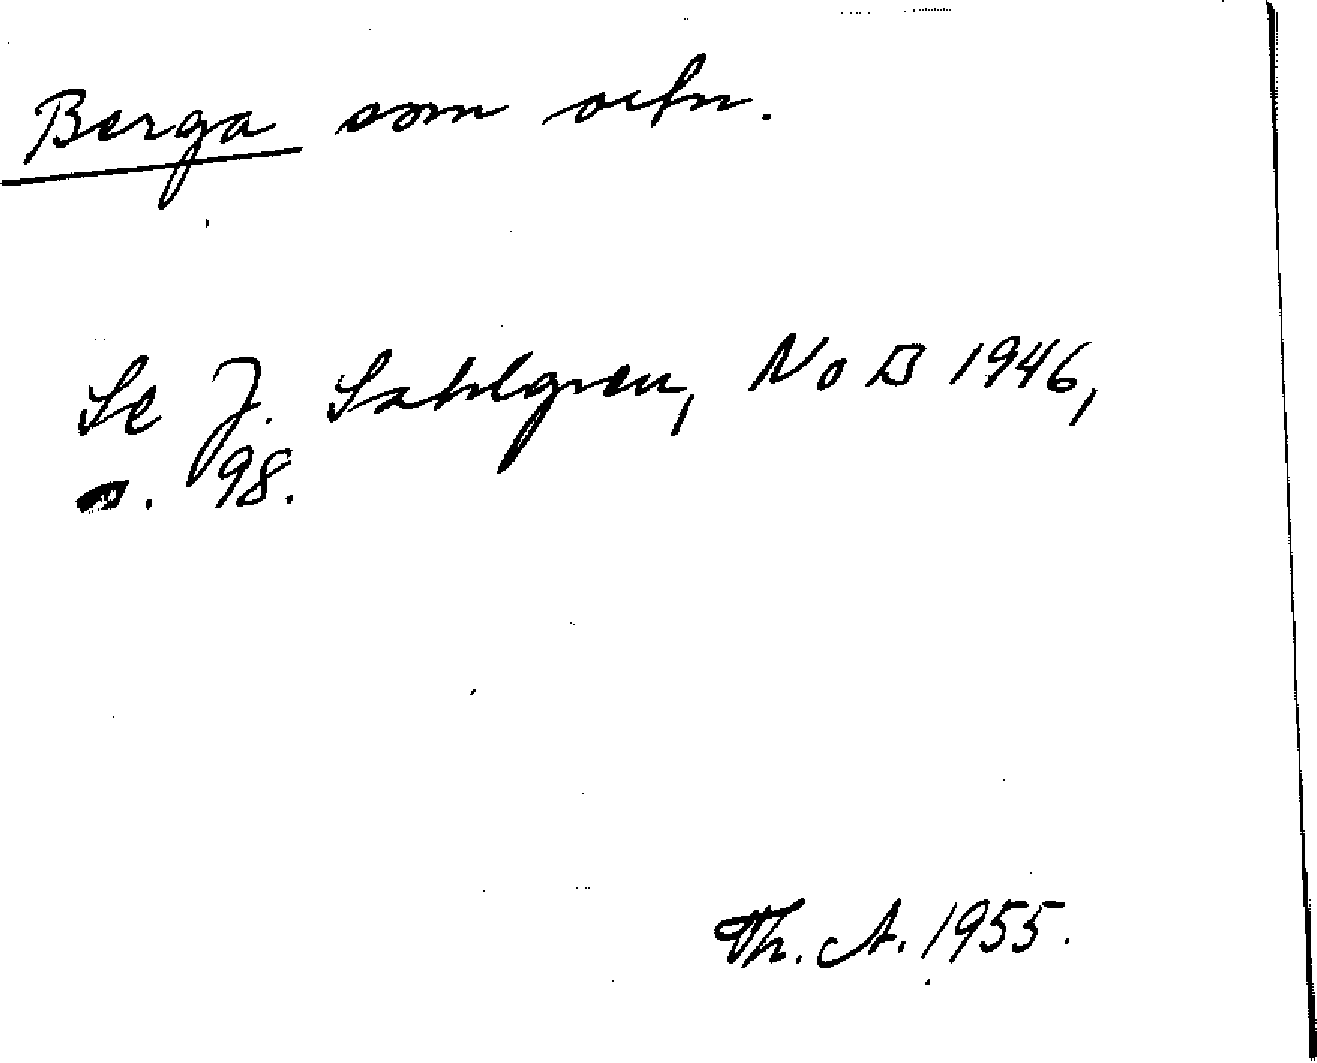 Berga som ortn.
Se J. Sahlgren, NoB 1946,
s. 98.
Th. A. 1955.